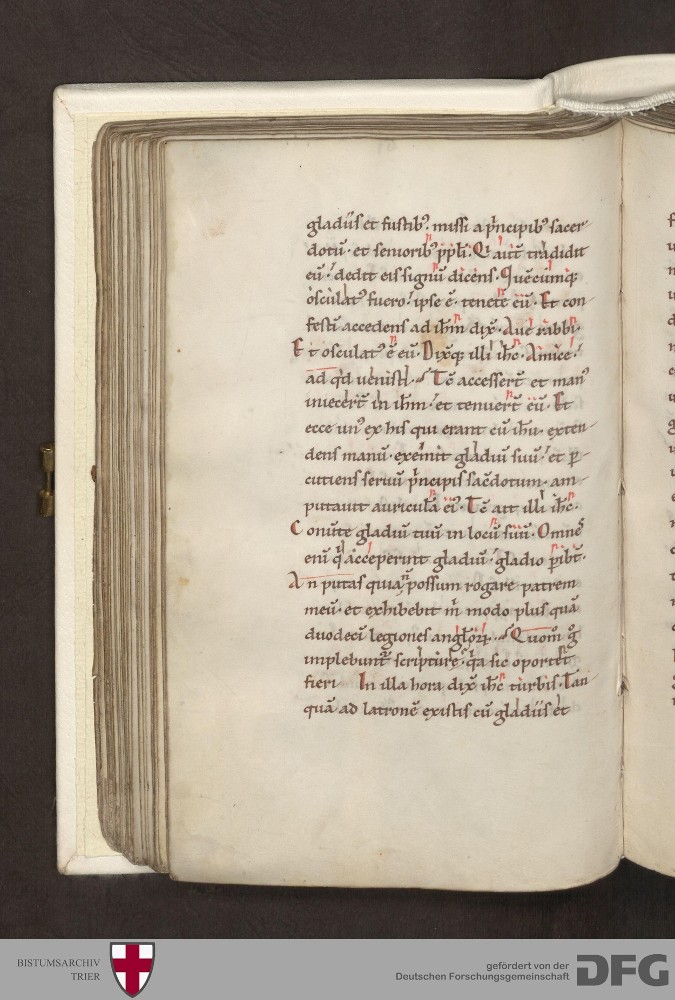 gladiis et fustib᷒. missi a pͥncipib᷒ sacer-
dotū· et seniorib᷒ pp̄li. Qͥ autē tradidit
eū· dedit eis signū dicens. Quēcūmq;
osculat᷒ fuero· ipse ē· tenete eū· Et con-
festī accedens ad ih̄m dix̄· Aue rabbi·
Et osculat᷒ ē eū· Dix̄q; illi ih̄c· Amice·
ad qͥd uenisti· Tc̄ accesserт̄ et man᷒
iniecert̄ in ih̄m· et tenuert̄ eū· Et
ecce un᷒ ex his qui erant cū ih̄u· exten-
dens manū· exemit gladiū suū· et ꝑ-
cutiens seruū pͥncipis sac̄dotum· am-
putauit auriculā ei᷒· Tc̄ ait illi ih̄c·
Conūte gladiū tuū in locū suū· Omn̄s
enī qͥ acceperint gladiū· gladio ꝑibt̄·
An putas quia n̄ possum rogare patrem
meū· et exhibebit m̄ modo plus quā
duodecī legiones anglōꝝ· Quom̄ gͦ
implebunt᷑ scripture· qͥa sic oportet
fieri In illa hora dix̄ ih̄c turbis· Tan
quā ad latronē existis cū gladiis et
BISTUMSARCHIV
TRIER
gefördert von der
Deutschen Forschungsgemeinschaft
DFG